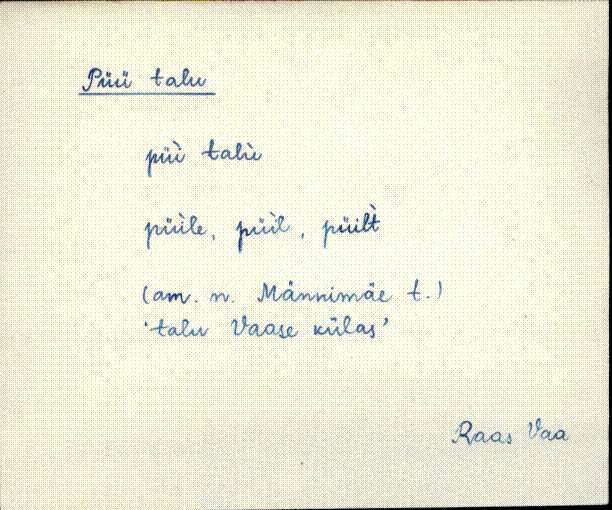 Püü talu
püì talù
püìle, püìl, püilt̀
(am. n. Männimäe t.)
'talu Vaase külas'
Raas Vaa